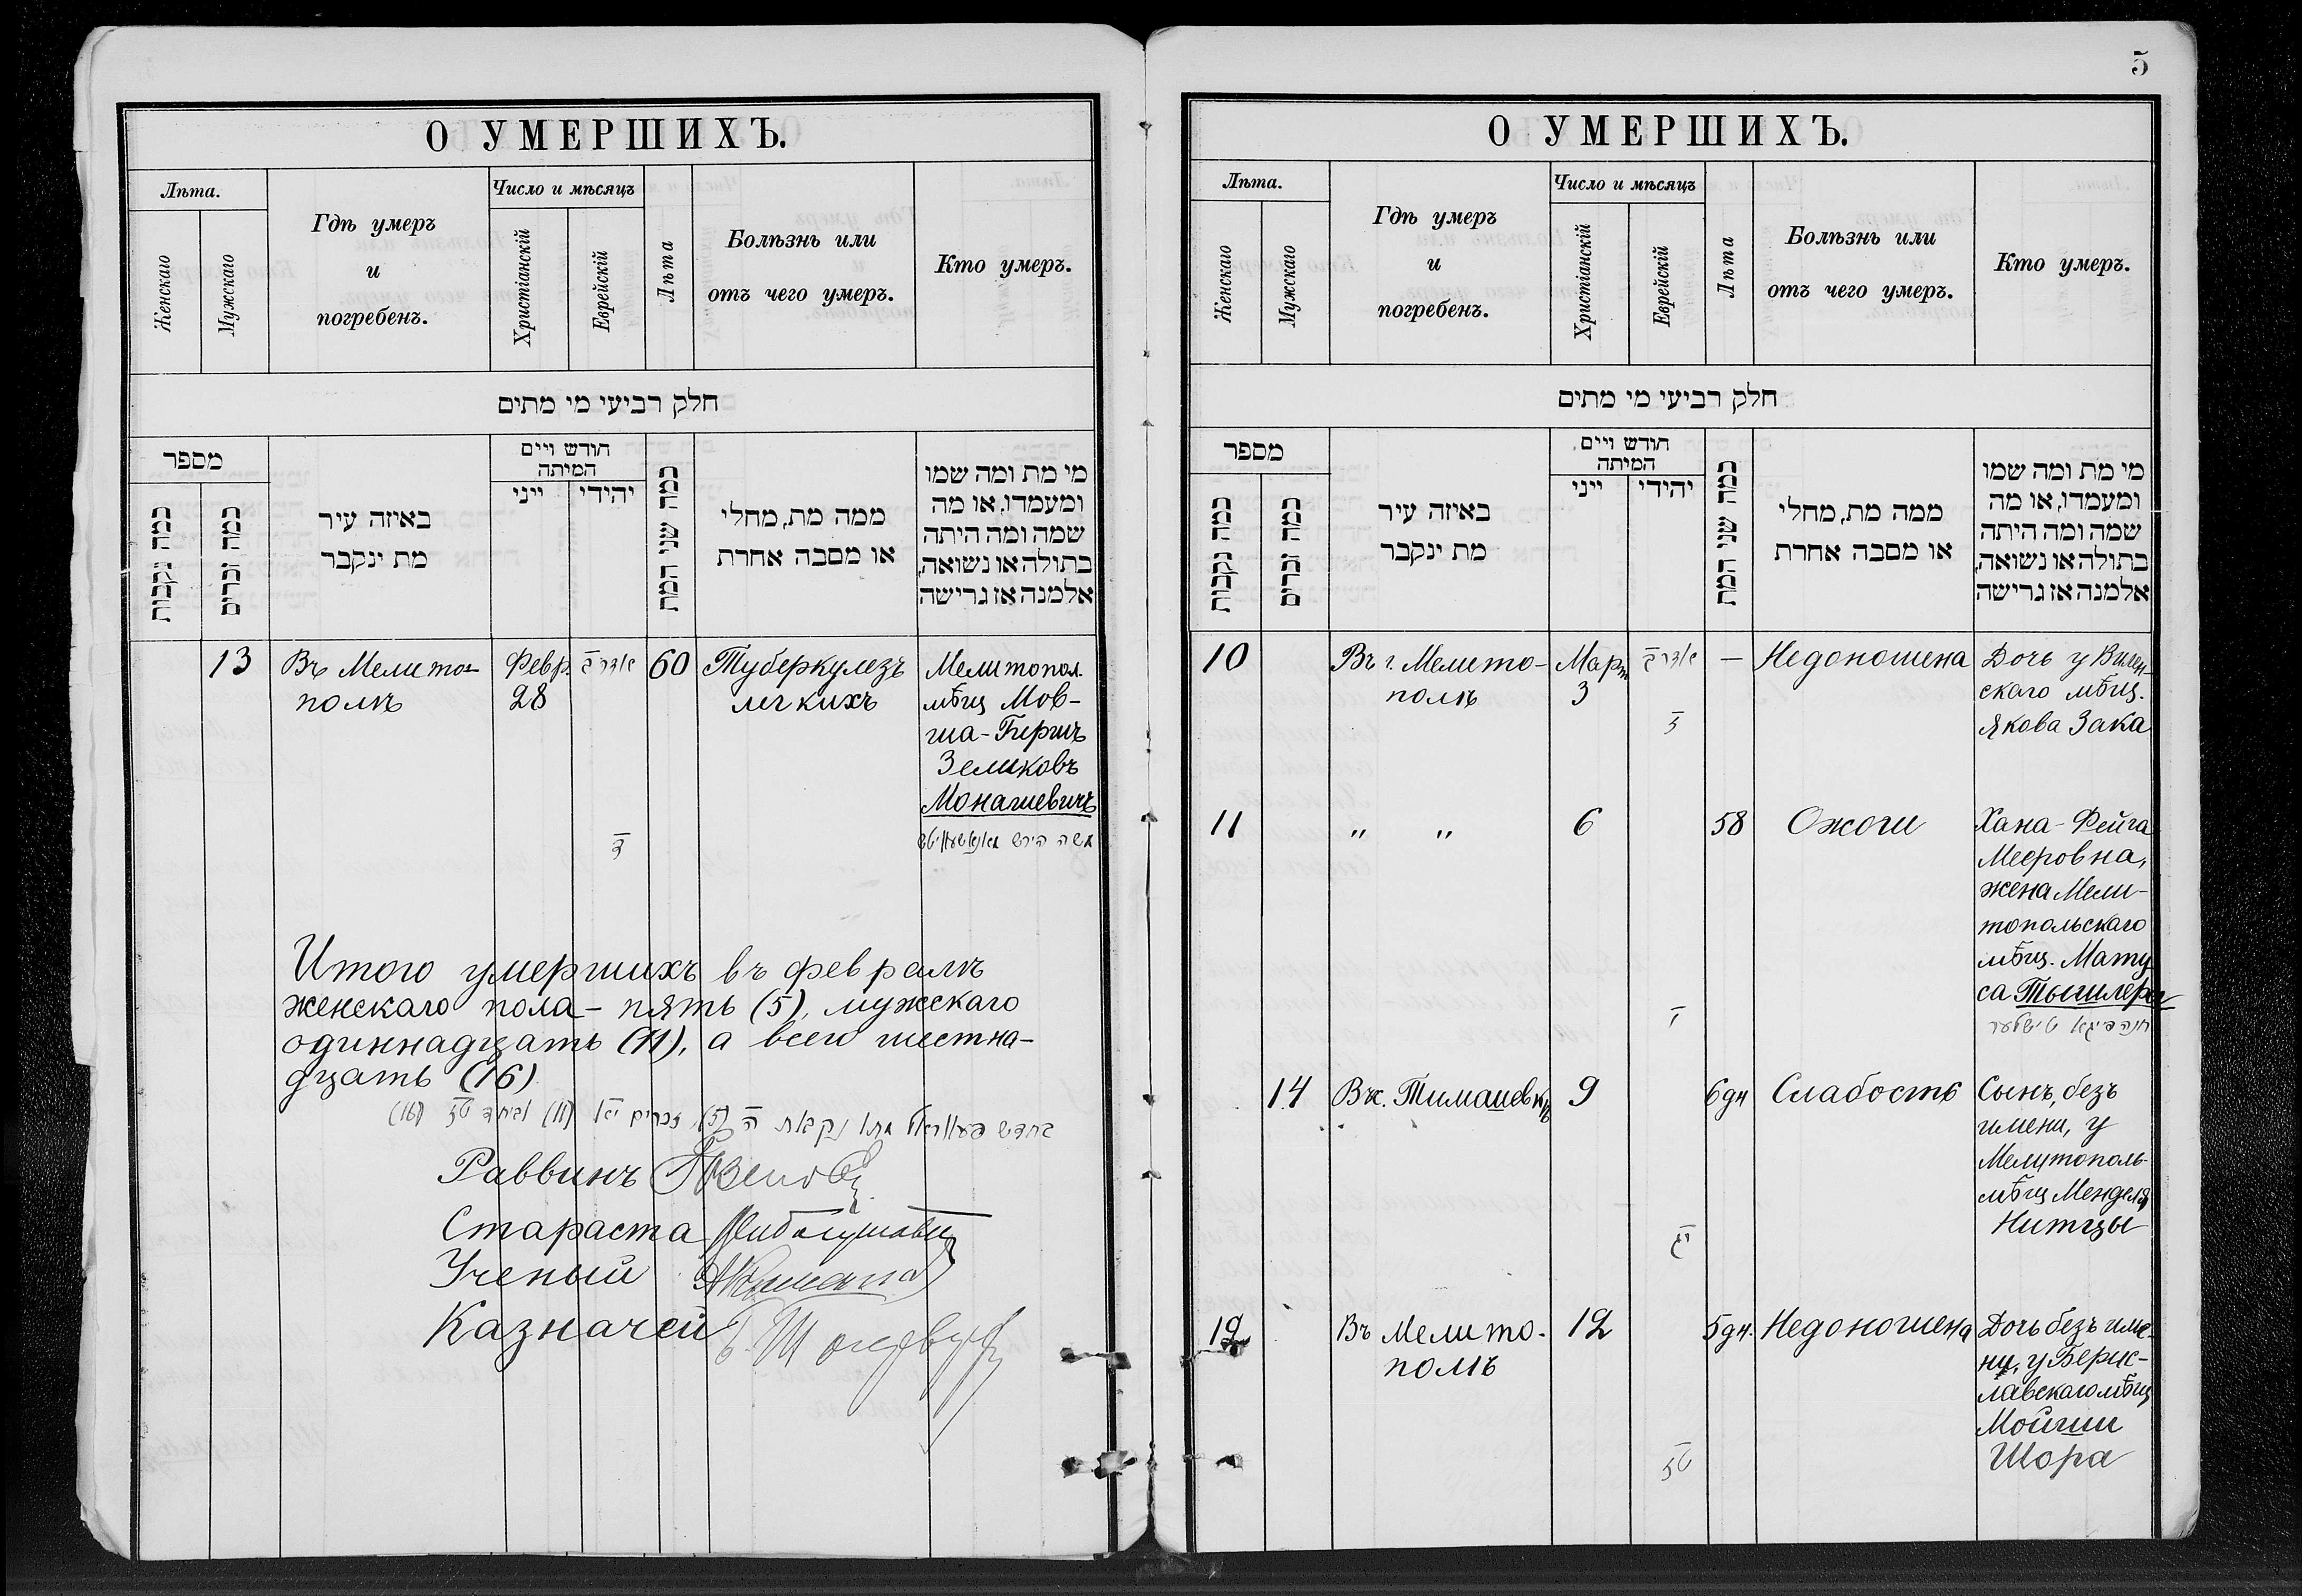 О УМЕРШИХЪ.
Лѣта.
Женскаго
Мужскаго
Гдѣ умеръ
и
погребенъ.
Число и мѣсяцъ
Христіанскій
Еврейскій
Лѣта
Болѣзнь или
отъ чего умеръ.
Кто умеръ.
חלק רביעי מי מתים
מספר
כמה נקבות
כמה זכרים
באיזה עיר
מת ינקבר
חודש ויים
המיתה
ייני
יהידי
כמה שני המת
ממה מת, מחלי
או מסבה אחרת
מי מת ומה שמו
ומעמדו, או מה
שמה ומה היתה
בתולה או נשואה,
אלמנה אז גרישה
13
Въ Мелито-
полѣ
Февр.
28
אדר
60
Туберкулезъ
легкихъ
Мелитопол.
мѣщ Мов-
ша-Гершъ
Зеликовъ
Монашевичъ
משה הירש
Итого умершихъ въ февралѣ
женскаго пола - пять (5), мужскаго
одиннадцать (11), а всего шестна-
дцать (16)
בחדש פעווראל מתו נקבות ה (5), זכרים יא (11) וביחד טז (16)
Раввинъ
Стараста
Ученый
Казначей
5
О УМЕРШИХЪ.
Лѣта.
Женскаго
Мужскаго
Гдѣ умеръ
и
погребенъ.
Число и мѣсяцъ
Христіанскій
Еврейскій
Лѣта
Болѣзнь или
отъ чего умеръ.
Кто умеръ.
חלק רביעי מי מתים
מספר
כמה נקבות
כמה זכרים
באיזה עיר
מת ינקבר
חודש ויים
המיתה
ייני
יהידי
כמה שני המת
ממה מת, מחלי
או מסבה אחרת
מי מת ומה שמו
ומעמדו, או מה
שמה ומה היתה
בתולה או נשואה,
אלמנה אז גרישה
10
Въ г. Мелито-
полѣ
Март
3
אדר
ז
—
Недоношена
Дочь у Вилен-
скаго мѣщ.
Якова Зака
11
" "
6
י
58
Ожоги
Хана-Фейга
Мееровна,
жена Мели-
топольскаго
мѣщ. Мату
са Тышлера
חנה פייגא טישלער
14
Въ с. Тимашевкѣ
9
יג
6 дн
Слабость
Сынъ, безъ
имени, у
Мелитополь-
мѣщ Менделя
Нитцы
12
Въ Мелито-
полѣ
12
טז
5 дн.
Недоношена
Дочь безъ име-
ни, у Берис-
лавскаго мѣщ
Мойши
Шора